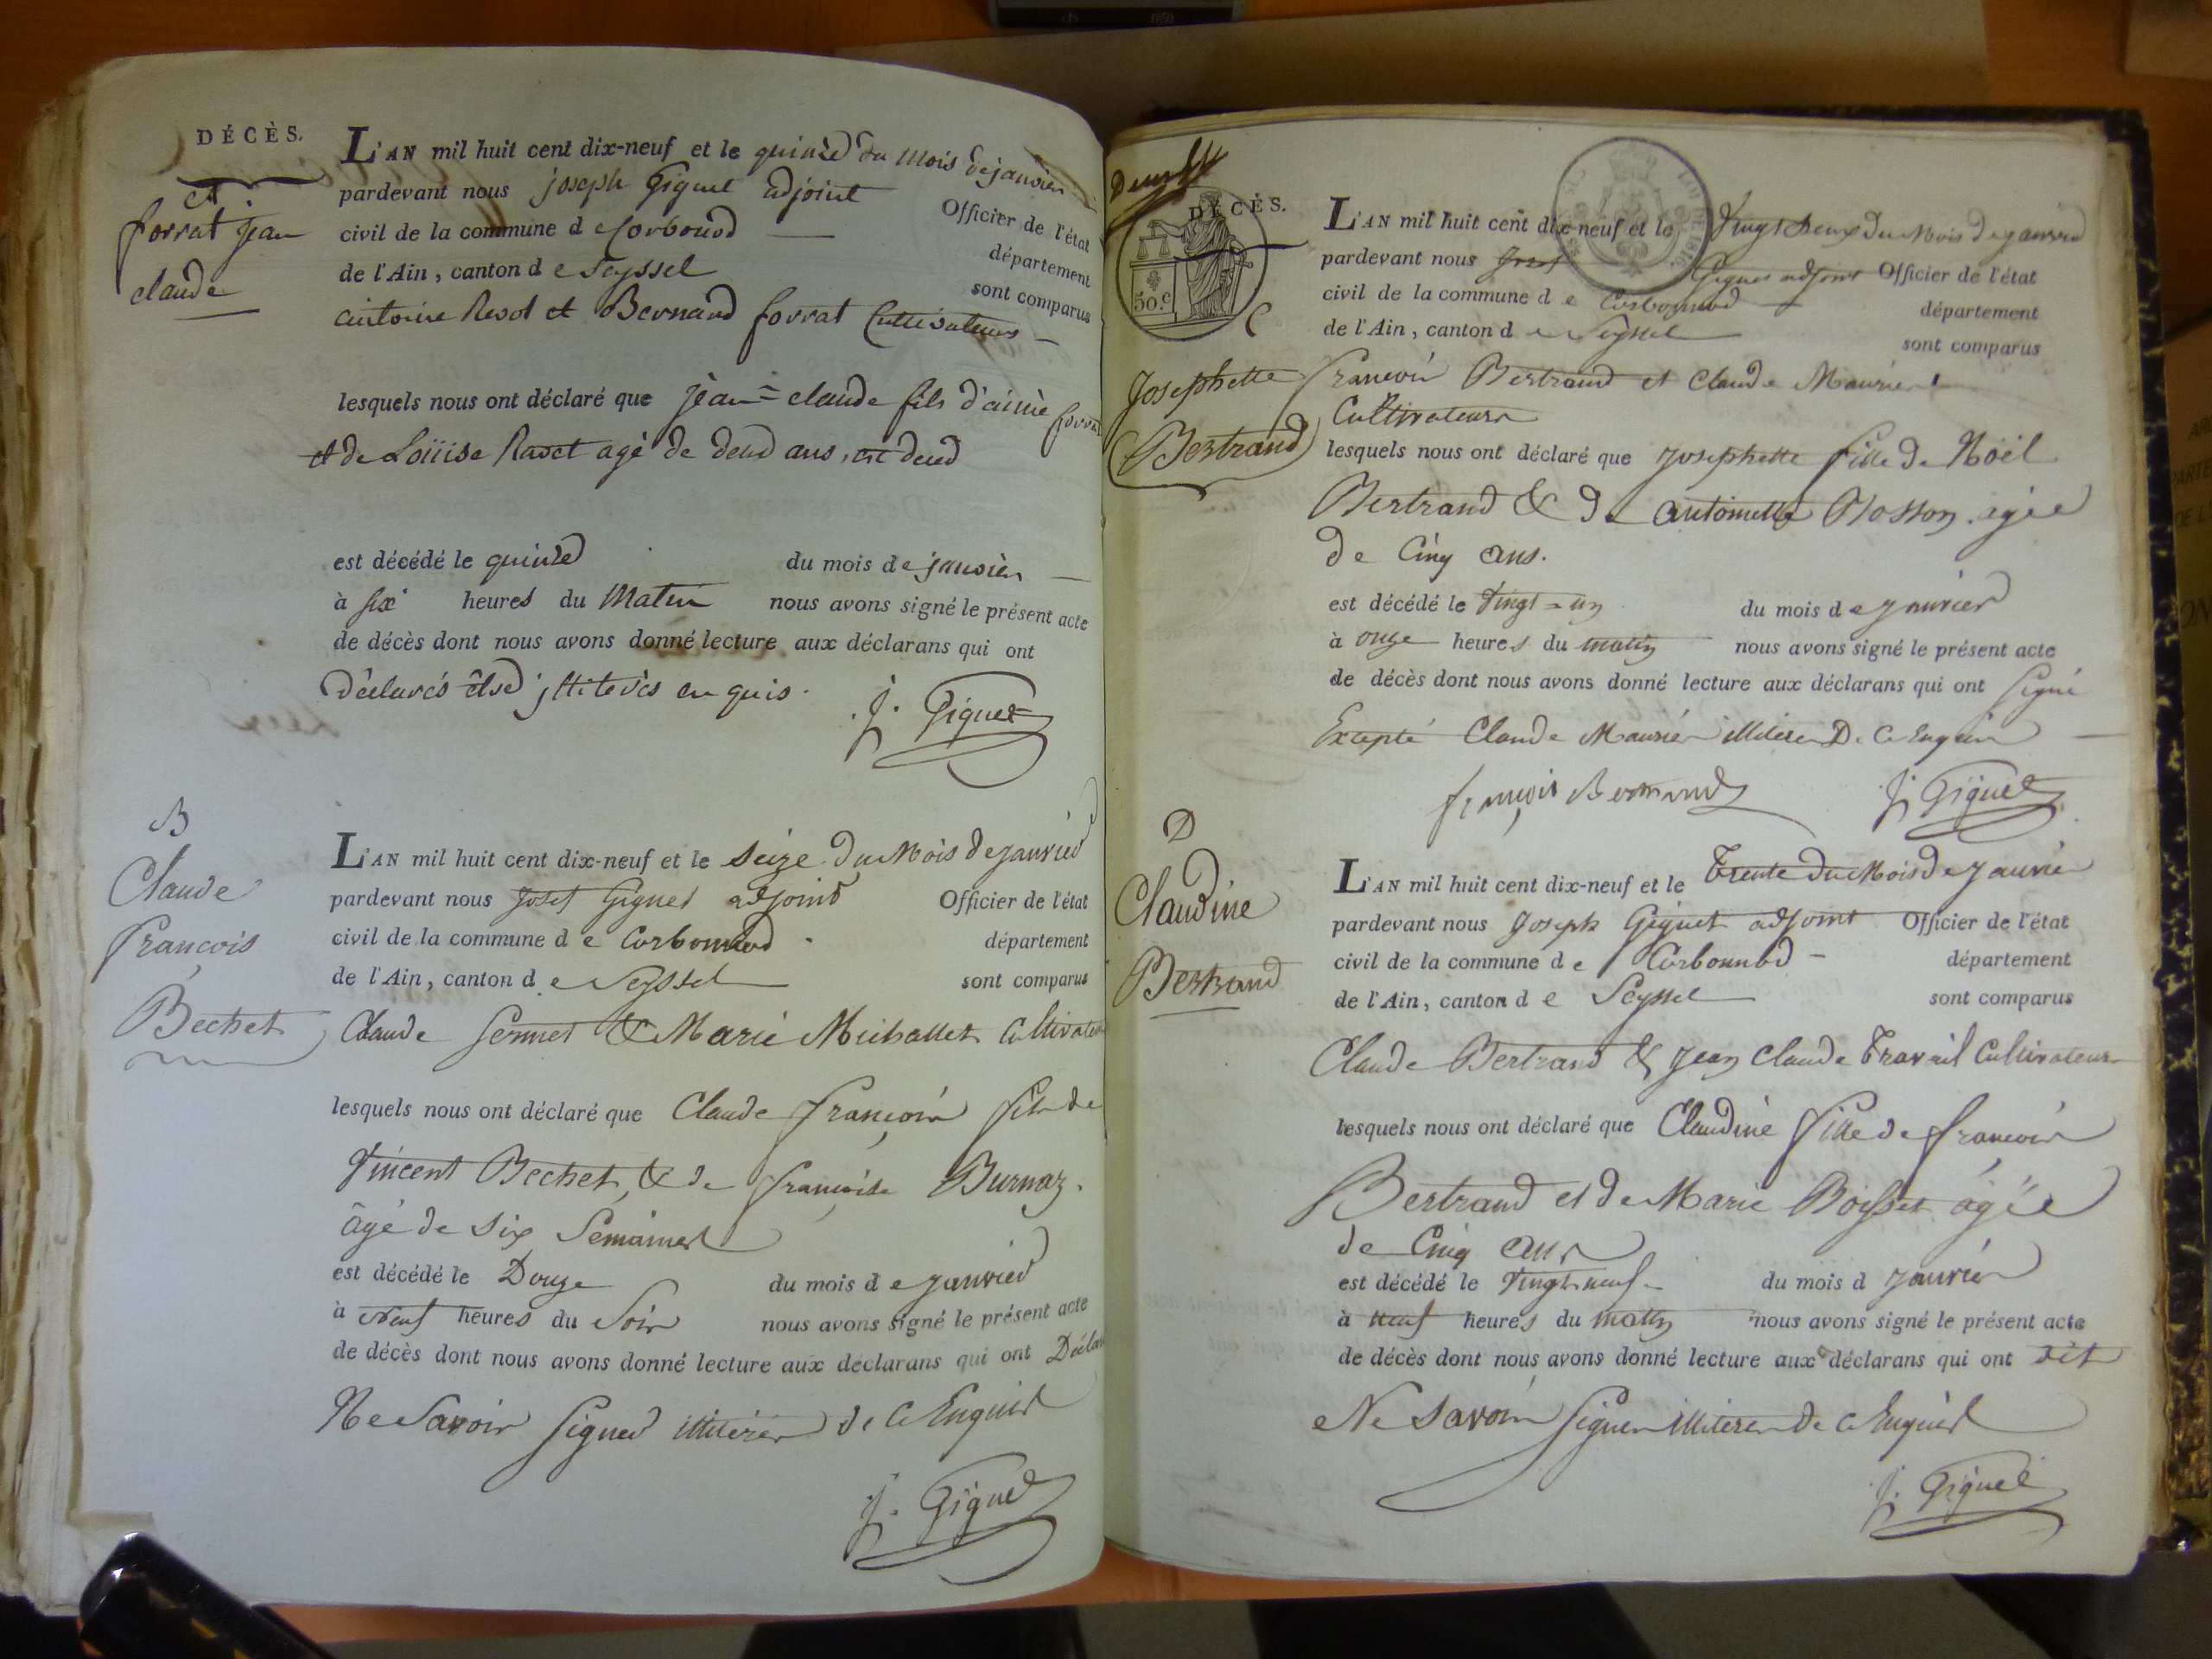 DÉCÈS.
A
forrat jean
claude
L'AN mil huit cent dix-neuf et le quinze du mois de janvier
pardevant nous joseph Giguet adjoint Officier de l'état
civil de la commune de Corbonod département
de l'Ain, canton de Seyssel sont comparus
antoine Ravot et Bernard forrat Cultivateurs
lesquels nous ont déclaré que jean=claude fils d'aimé forrat
et de Loüise Ravot agé de deux ans,
est décédé le quinze du mois de janvier
à six heures du Matin nous avons signé le présent acte
de décès dont nous avons donné lecture aux déclarans qui ont
déclarés en quis.
J. Giguet
B
Claude
françois
Bechet
L'AN mil huit cent dix-neuf et le seize du Mois de janvier
pardevant nous Josef Giguet adjoint Officier de l'état
civil de la commune de Corbonnod département
de l'Ain, canton de Seyssel sont comparus
Claude & Marie Michallet Cultivateurs
lesquels nous ont déclaré que Claude françois fils de
Vincent Bechet, & de françoise Burnaz.
âgé de six Semaines
est décédé le Douze du mois de janvier
à Neuf heures du Soir nous avons signé le présent acte
de décès dont nous avons donné lecture aux déclarans qui ont Déclaré
Ne Savoir Signer illiterer de ce Enquis
J. Giguet
DÉCÈS.
50.c
C
Josephette
Bertrand
L'AN mil huit cent dix-neuf et le Vingt deux du Mois de janvier
pardevant nous Josef Giguet adjoint Officier de l'état
civil de la commune de Corbonnod département
de l'Ain, canton de Seyssel sont comparus
francois Bertrand et Claude Maurier
Cultivateurs
lesquels nous ont déclaré que Josephette fille de Noël
Bertrand & de antoinette Mosson agée
de Cinq ans.
est décédé le Vingt=un du mois de janvier
à onze heures du matin nous avons signé le présent acte
de décès dont nous avons donné lecture aux déclarans qui ont Signé
Excepté Claude Maurier illiterer De Ce Enquis
françois Bertrand J. Giguet
D
Claudine
Bertrand
L'AN mil huit cent dix-neuf et le Trente du Mois de Janvier
pardevant nous Joseph Giguet adjoint Officier de l'état
civil de la commune de Corbonnod département
de l'Ain, canton de Seyssel sont comparus
Claude Bertrand & Jean Claude Travail Cultivateurs
lesquels nous ont déclaré que Claudine fille de francois
Bertrand et de Marie Boisset agée
de Cinq ans
est décédé le Vingt neuf du mois d janvier
à neuf heures du matin nous avons signé le présent acte
de décès dont nous avons donné lecture aux déclarans qui ont dit
Ne Savoir Signer illiterer de ce Enquis
J. Giguet